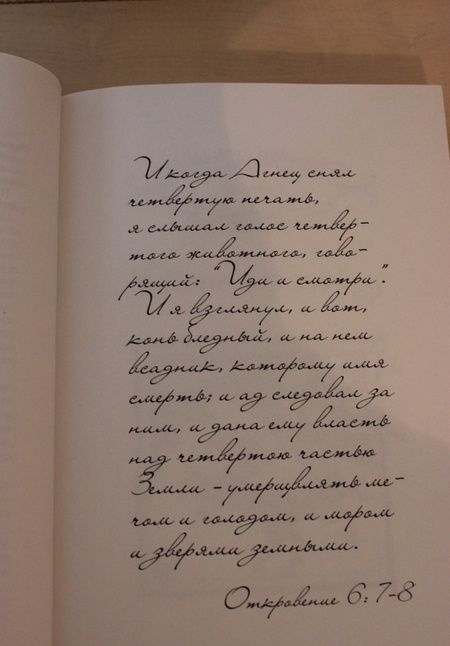 И когда Агнец снял
четвертую печать,
я слышал голос четвер-
того животного, гово-
рящий: "Иди и смотри".
И я взглянул, и вот,
конь бледный, и на нем
всадник, которому имя
смерть; и ад следовал за
ним, и дана ему власть
над четвертою частью
Земли – умерщвлять ме-
чом и голодом, и мором
и зверями земными.
Откровение 6: 7-8